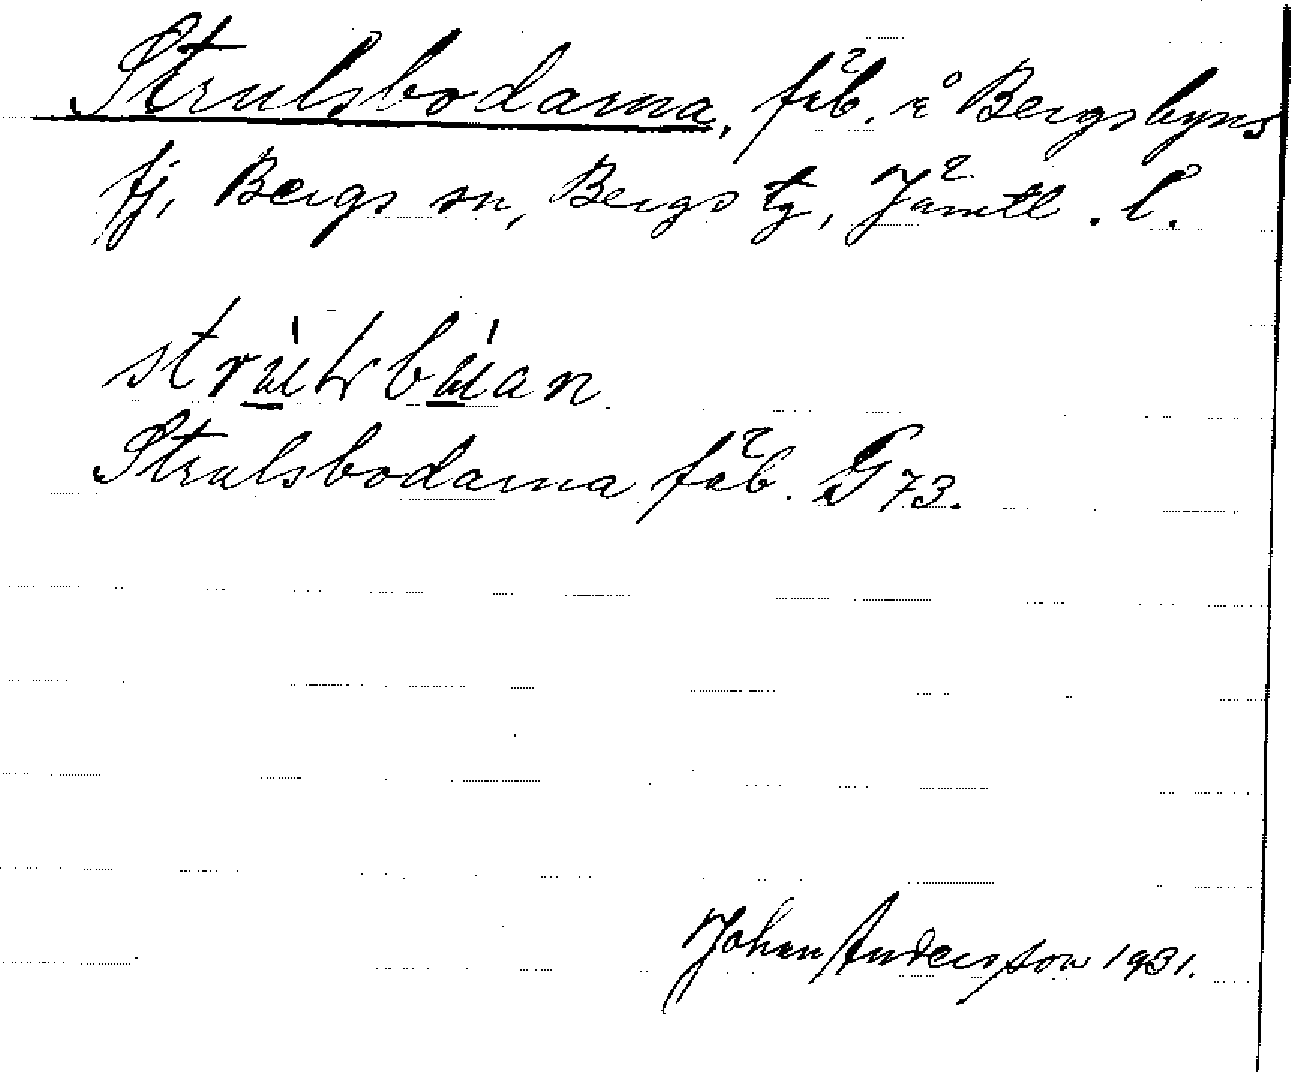 Strulsbodarna, fäb. i Bergsbyns
fj, Bergs sn, Bergs tg, Jämtl. l.
Strulsbodarna fäb. G 73.
Johan Andersson 1931.